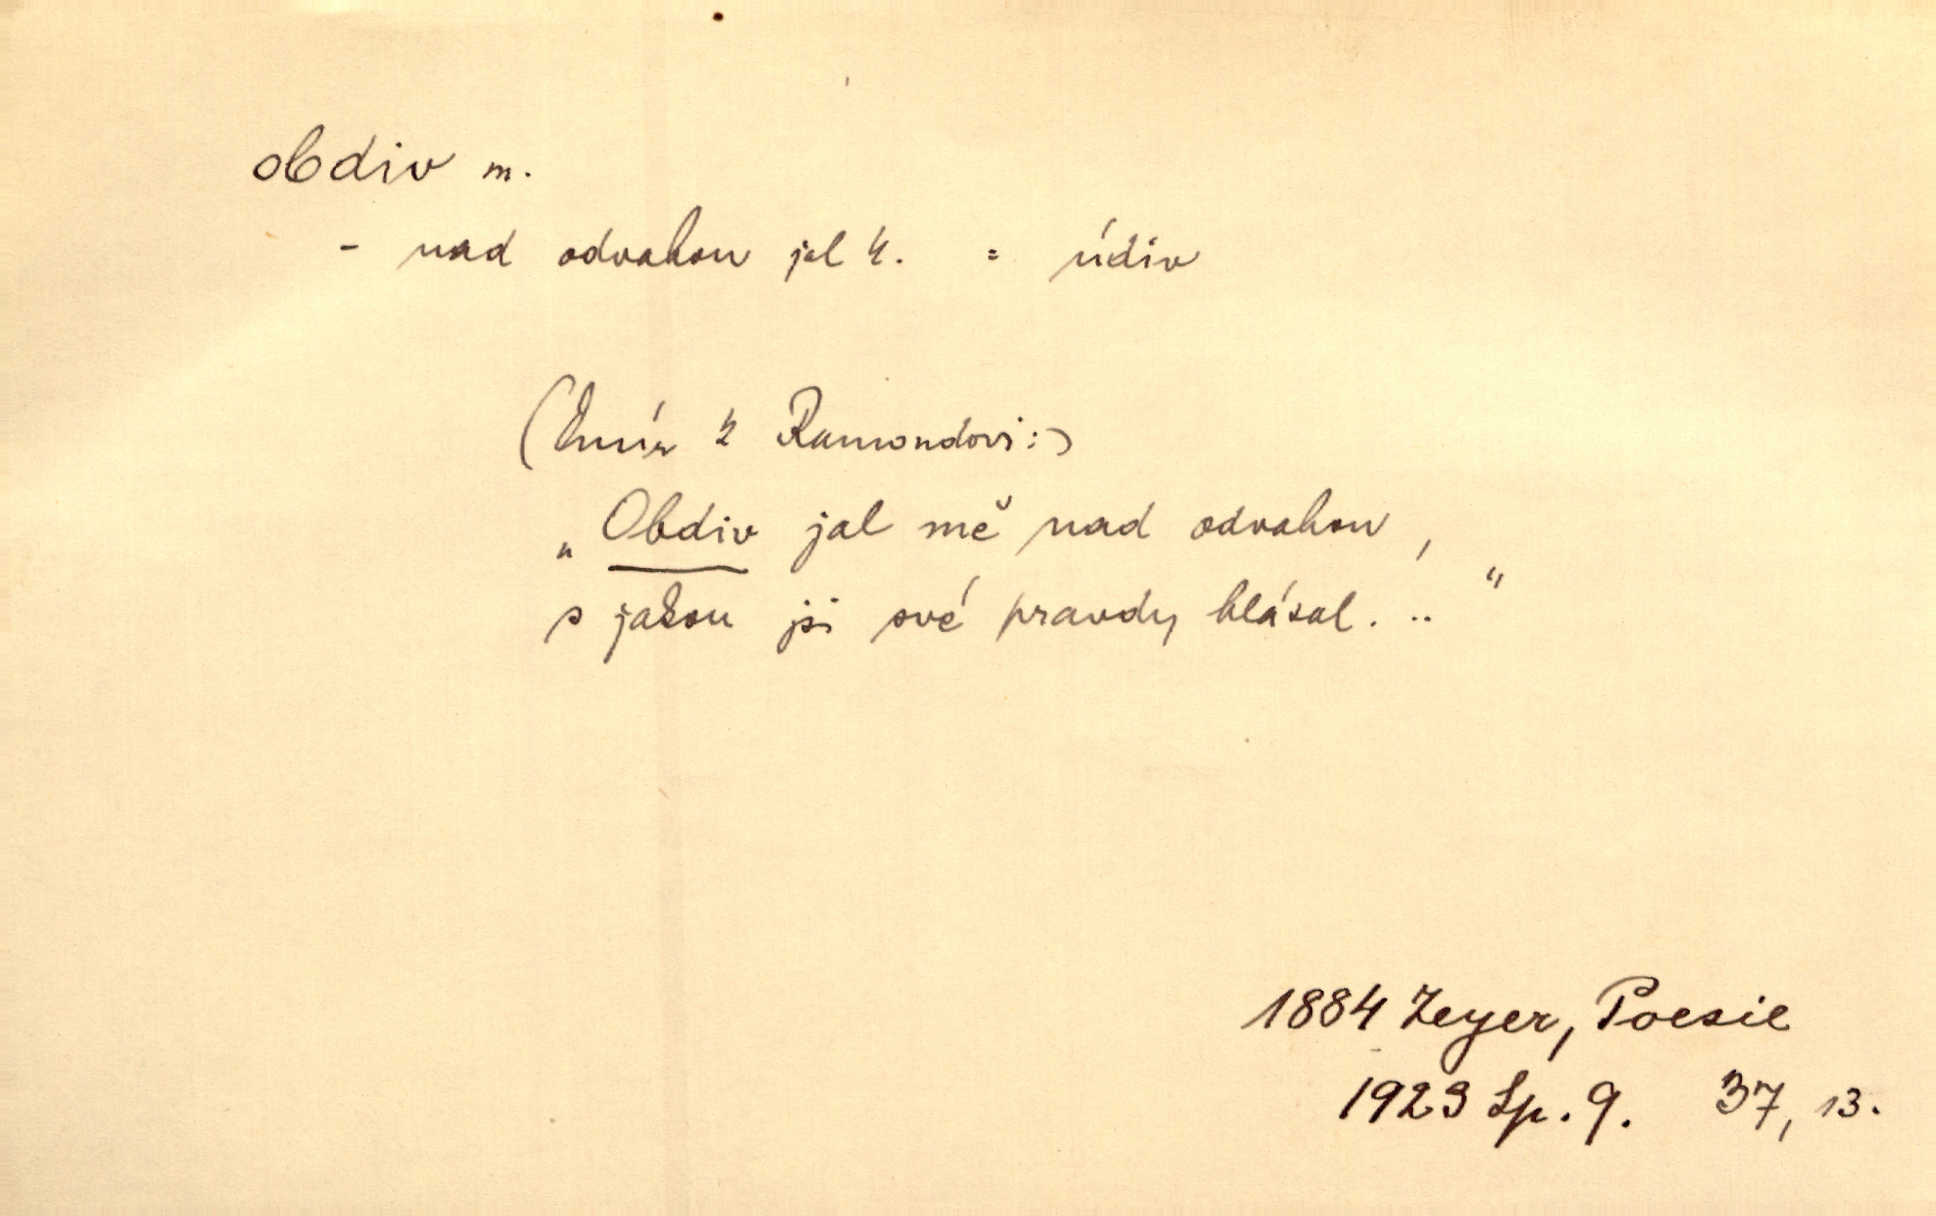 obdiv m.
- nad odvahou jal k. = údiv
(Emír k Ramondovi:)
„Obdiv jal mě nad odvahou,
s jakou jsi své pravdy hlásal. .."
1884 Zeyer, Poesie
1923 Sp. 9. 37, 13.